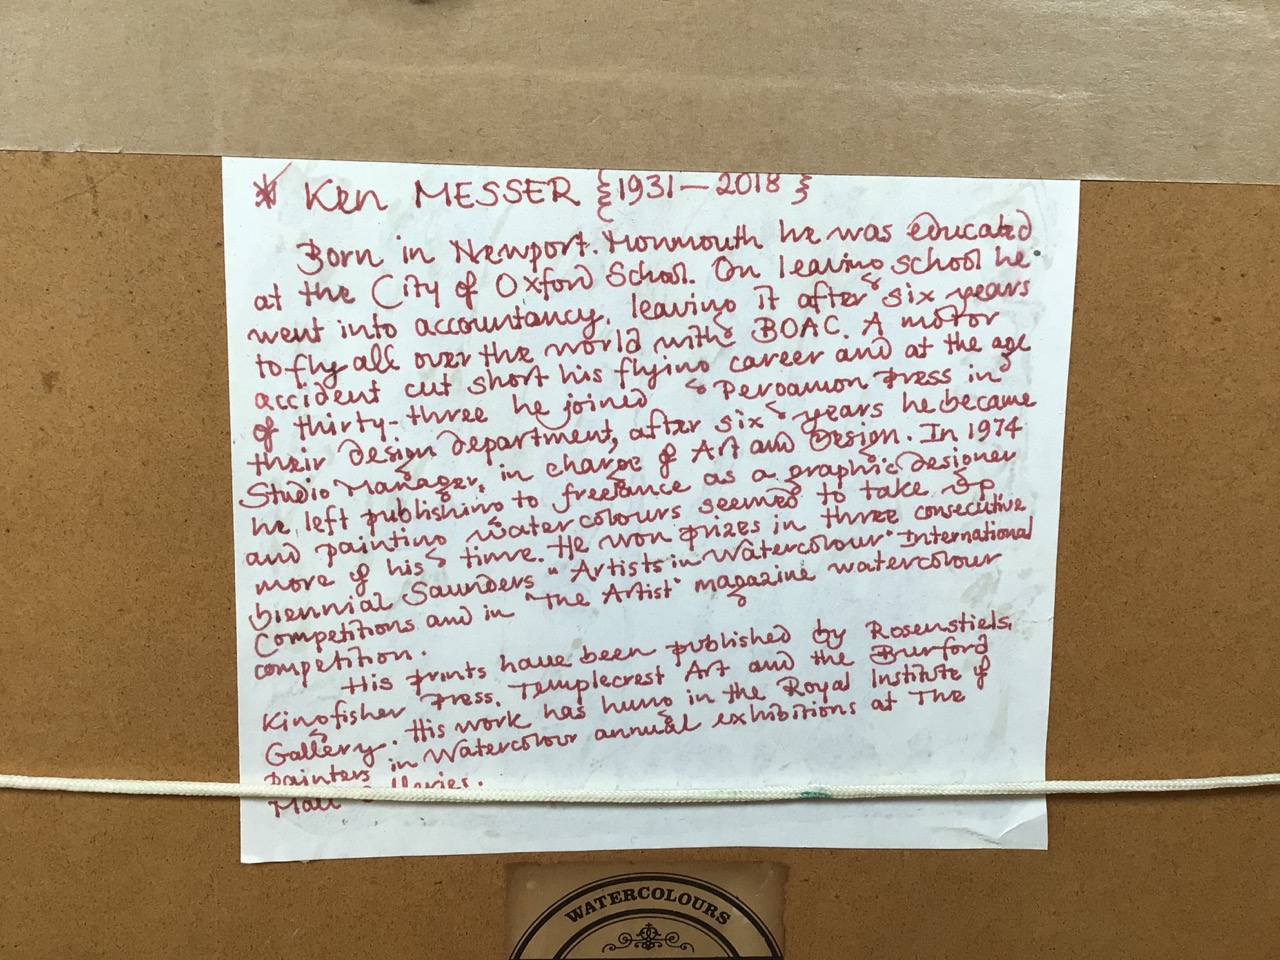 * Ken MESSER {1931-2018}
Born in Newport. Monmouth he was educated
at the City of Oxford School. On leaving school he
went into accountancy, leaving it after six years
to fly all over the world with BOAC. A motor
accident cut short his flying career and at the age
of thirty-three he joined Pergamon Press in
their design department, after six years he became
Studio Manager, in charge of Art and Design. In 1974
he left publishing to freelance as a graphic designer
and painting watercolours seemed to take up
more of his time. He won prizes in three consecutive
biennial Saunders "Artists in Watercolour" International
Competitions and in "The Artist" magazine watercolour
competition.
His prints have been published by Rosenstiels,
Kingfisher Press, Templecrest Art and the Burford
Gallery. His work has hung in the Royal Institute of
painters in Watercolour annual exhibitions at The
Mall Galleries.
WATERCOLOURS